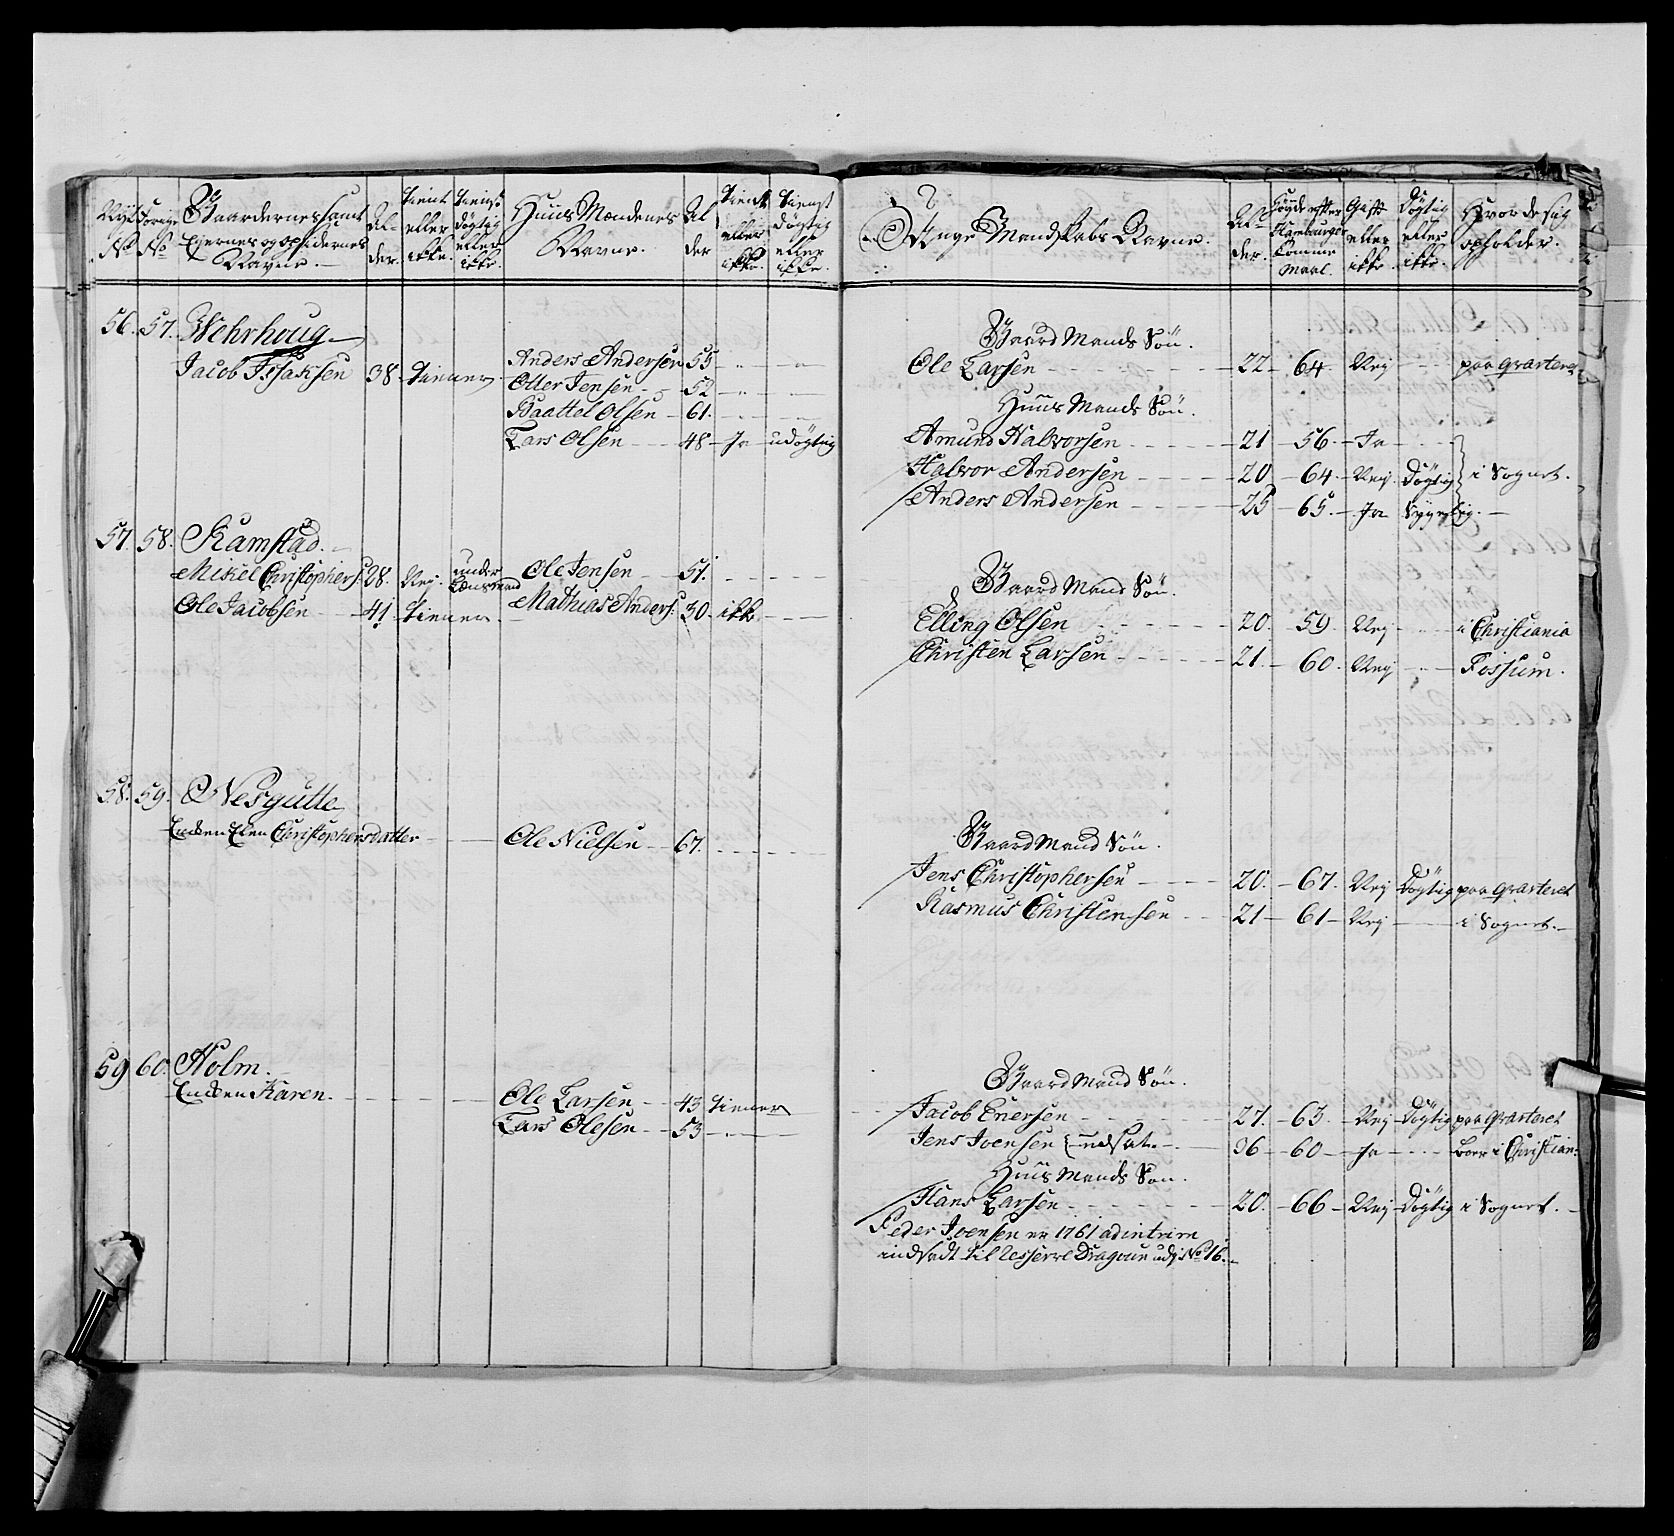 Nye No Forrige No Gaardernes samt Ejernes og opsidernes Navne. Alder. tient eller ikke. tienst dögtig eller ikke. Huus Mændenes Navne. Alder tient eller ikke. tienst dögtig eller ikke.
56. 57. Wehrhoug
Jacob Issaksen 38 tiener
Anders Andersen 55
Otter Jensen 52
Baattel Olsen 61.
Lars Olsen 48 Ja udögtig
57. 58. Ramstad.
Mikel Christophers: 28. Nej. under Lænsmand Ole Jensen 51.
Ole Jacobsen 41 tiener. Mathias Anders: 30. ikke
58. 59. Nesgutte
Enken Elen Christophersdatter Ole Nielsen 67.
59 60. Holm.
Enken Karen. Ole Larsen 43 tiener
Lars Olesen 53
Unge Mandskabs Navne. Alder. Högde efter Hamburger Tomme Maal. Gift eller ikke. Dögtig eller ikke. Hvor de sig opholder.
Gaard Mands Sön.
Ole Larsen 22 64 Nej paa qvarteret
Huus Mands Sön.
Amund Halvorsen 21 56 Ja
Halvor Andersen 20 64 Nej Dögtig i Sognet.
Anders Andersen 25 65. Ja
Gaard Mand Sön.
Elling Olsen 20. 59. Nej i Christiania
Christen Larsen 21. 60. Nej Fossum.
Gaard Mand Sön.
Jens Christophersen 20. 67. Nej Dögtig paa qvarteret
Rasmus Christensen 21 61 Nej i Sognet.
Gaard Mand Sön.
Jacob Enersen 27. 63. Nej Dögtig paa qvarteret
Jens Joensen udsat 36 60 Ja boer i Christian:
Huus Mands Sön.
Hans Larsen 20. 66 Nej Dögtig i Sognet.
Peder Joensen er 1761 ad intrim
indsadt til Dragoun udj No 16.